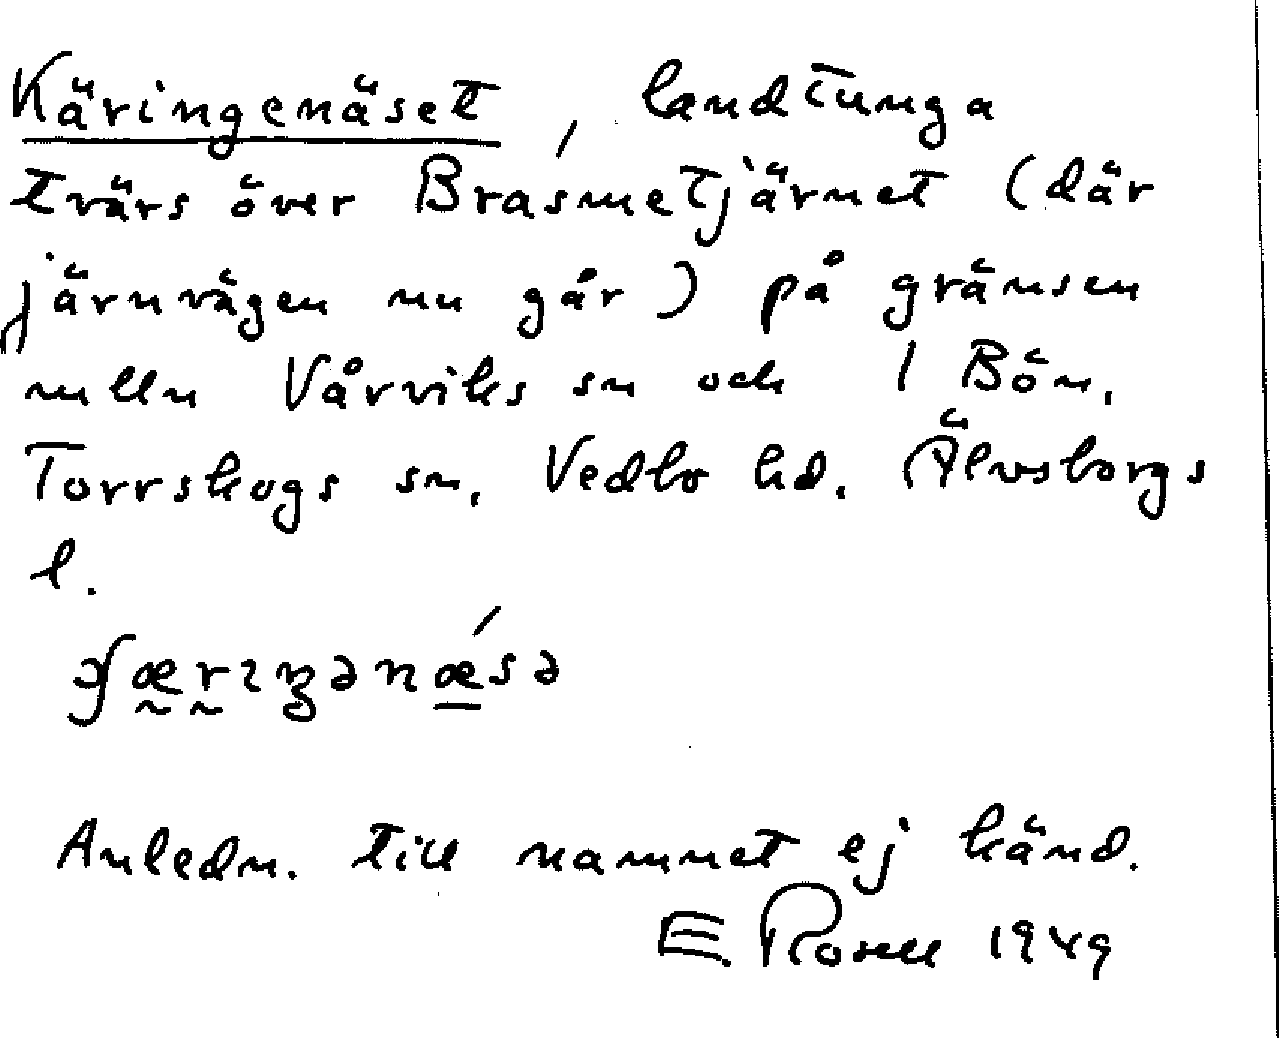 Käringenäset, landtunga
tvärs över Brasmetjärnet (där
järnvägen nu går) på gränsen
melln Vårviks sn och 1 Bön,
Torrskogs sn, Vedbo hd. Älvsborgs
l.
Anledn. till namnet ej känd.
E. Rosell 1949